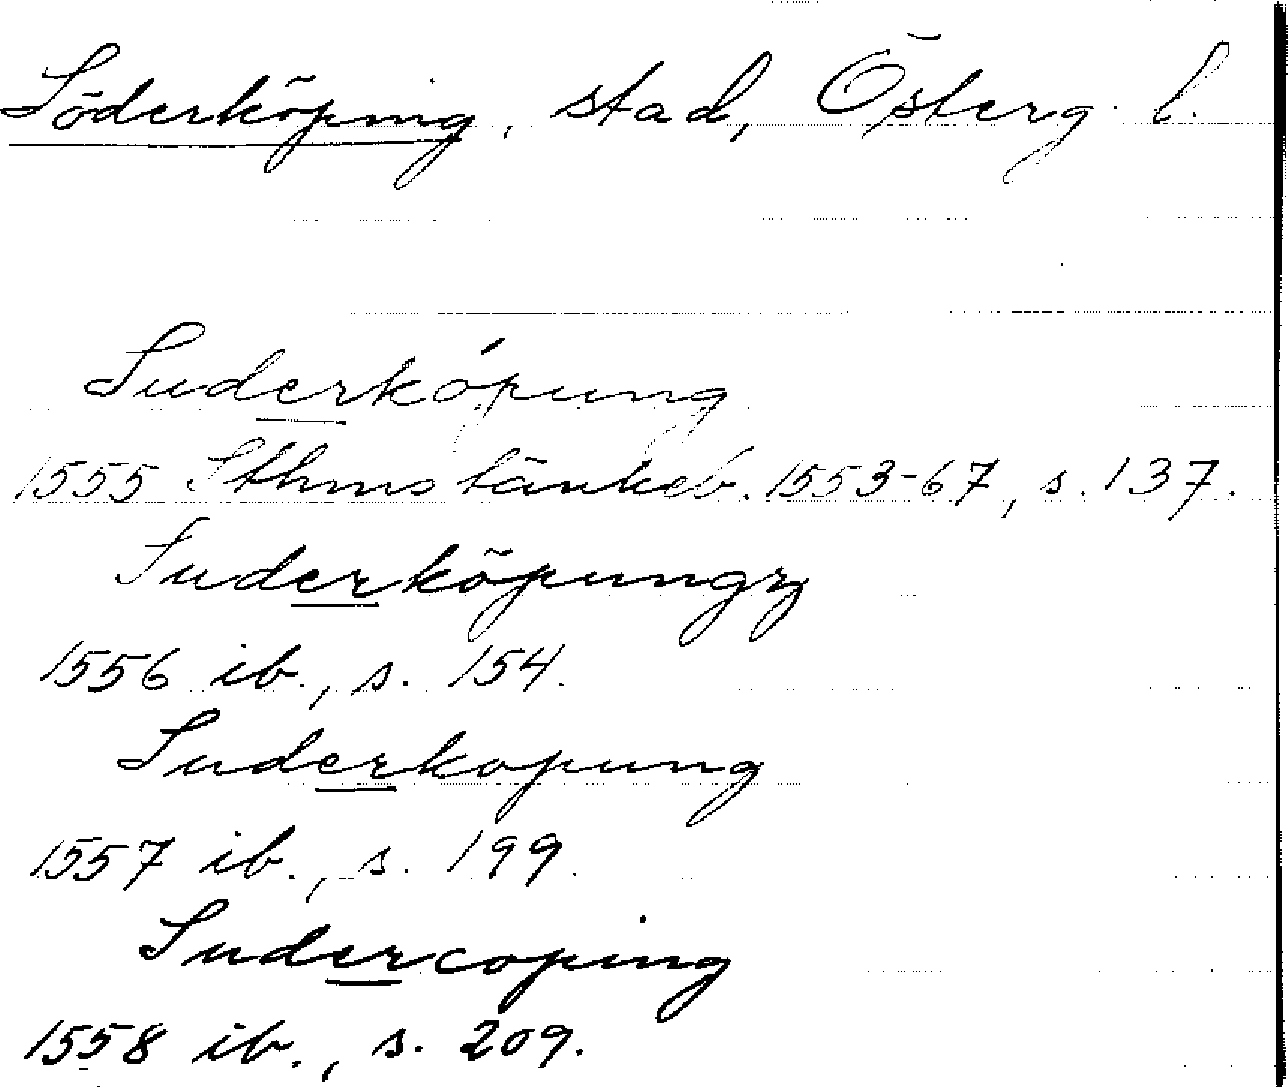 Söderköping, stad, Österg. l.
Suderkópung
1555 Sthms tänkeb. 1553-67, s. 137.
Suderköpungz
1556 ib., s. 154.
Suderkopung
1557 ib., s. 199.
Sudercoping
1558 ib., s. 209.